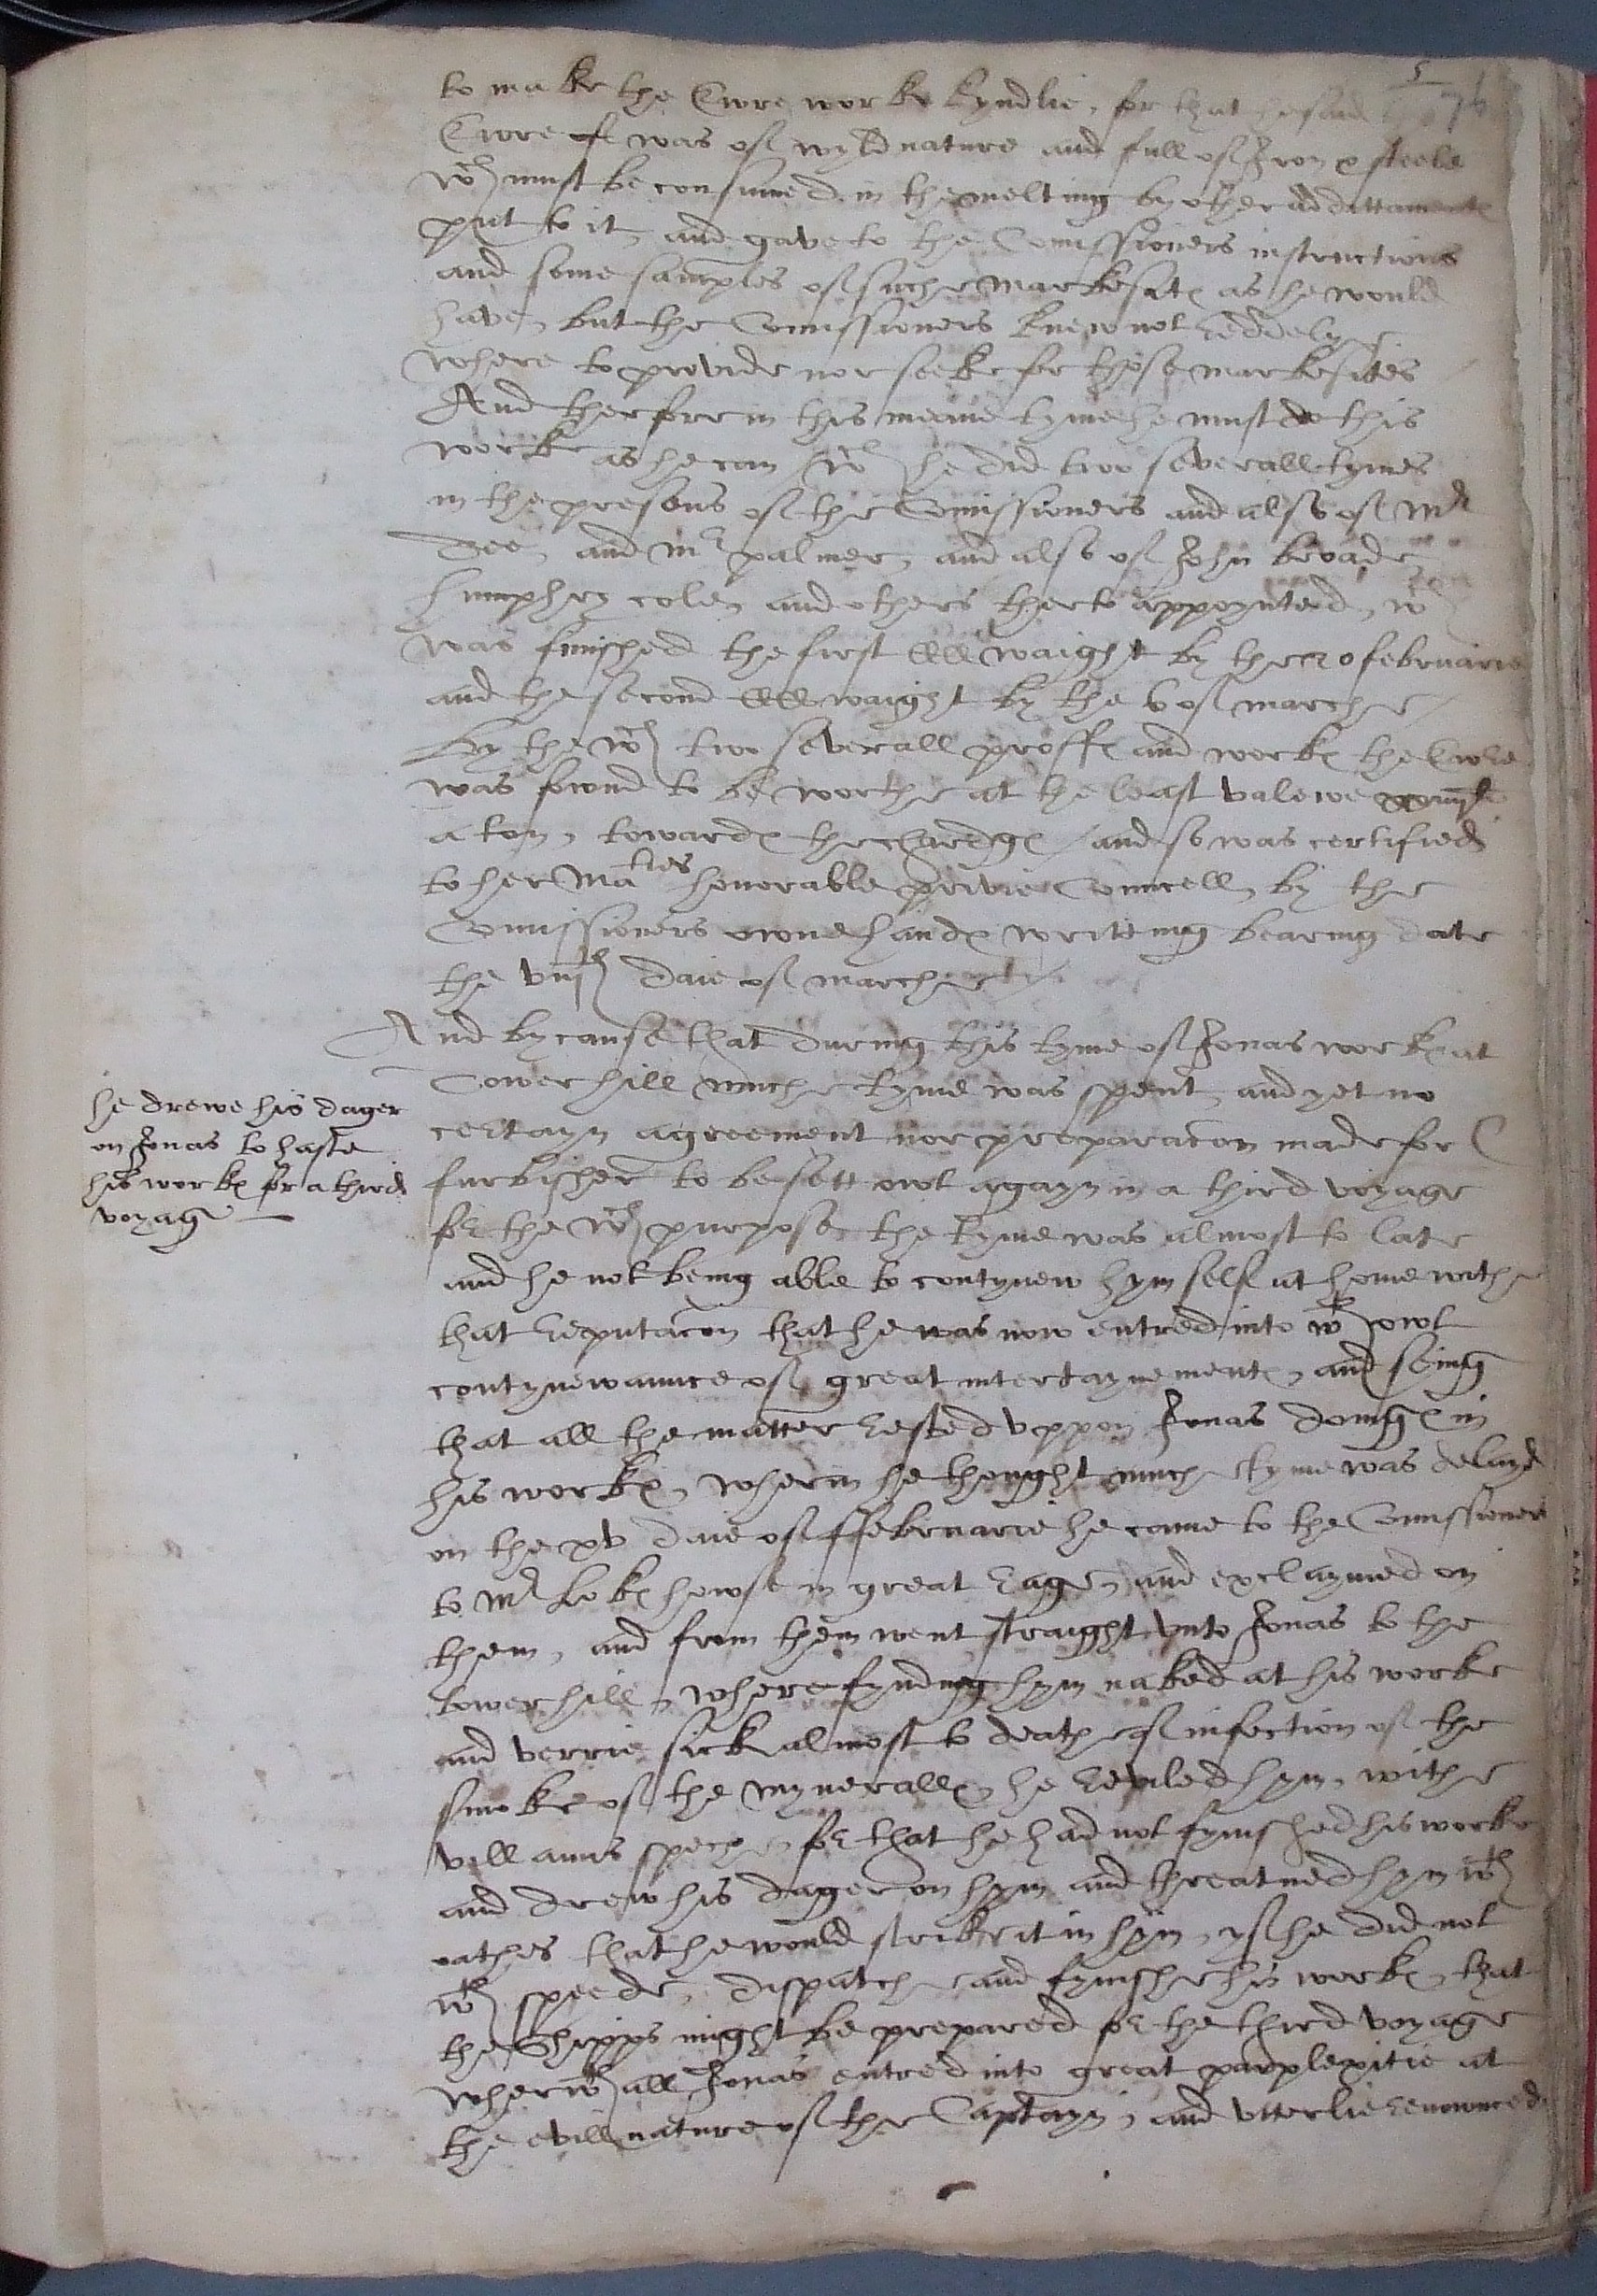 5
76
to make the Ewre worke kyndlie, for that he said
Ewre was of wyld nature and full of Iron & steele
wch must be consumed in the melting by other addittamentes
put to it, and gave to the Comissioners instructions
and some samples of suche markesites as he would
have, but the Comissioners knew not reddely
where to provide nor seeke for those markesites
And therfore in this meane tyme he must do this
worke as he can wch he did two severall tymes
in the presens of the Comissioners and also of Mr
Dee, and Mr palmer, and also of John brode
humphrey cole, and others therto appoynted, wch
was finished the first waight by the 20 februarie
and the second waight by the 6 of marche
By the wch two severall proffes and workes the Ewre
was fownd to be worthe at the least valewe
a ton, towardes the chardges and so was certified
to her Maties honorable privie Councell, by the
Comissioners owne handes writting bearing date
the viijth daie of marche
And bycause that during this tyme of Jonas workes at
Towerhill muche tyme was spent, and yet no
certayn agreement nor preparacon made for C
furbisher to be sett owt agayn in a third voyage
for the wch purpose the tyme was almost to late
and he not being able to contynew hym self at home withe
that reputacon that he was now entred into wthowt
contynewaunce of great intertaynementes, and seing
that all the matter rested uppon Jonas doinges in
his workes, wherin he thought muche tyme was delayd
on the xv daie of ffebruarie he came to the Comissioners
to Mr Lokes howse in great rage, and exclaymed on
them, and from them went straight unto Jonas to the
towerhill, where fynding hym naked at his worke
and verrie sick almost to deathe of infection of the
smoke of the mynералles, he reviled hym, withe
villanus speche, for that he had not fynished his worke
and drew his dager on hym and threatned hym wth
oathes that he would strike it in hym, yf he did not
wth speede, dispatche and fynishe his workes, that
the Shipps might be prepared for the third voyage
wherwth all Jonas entred into great parplexitie at
the evill nature of the Captayn, and utterlie renownced
he drewe his dager
on Jonas to haste
his workes for a third
voyage